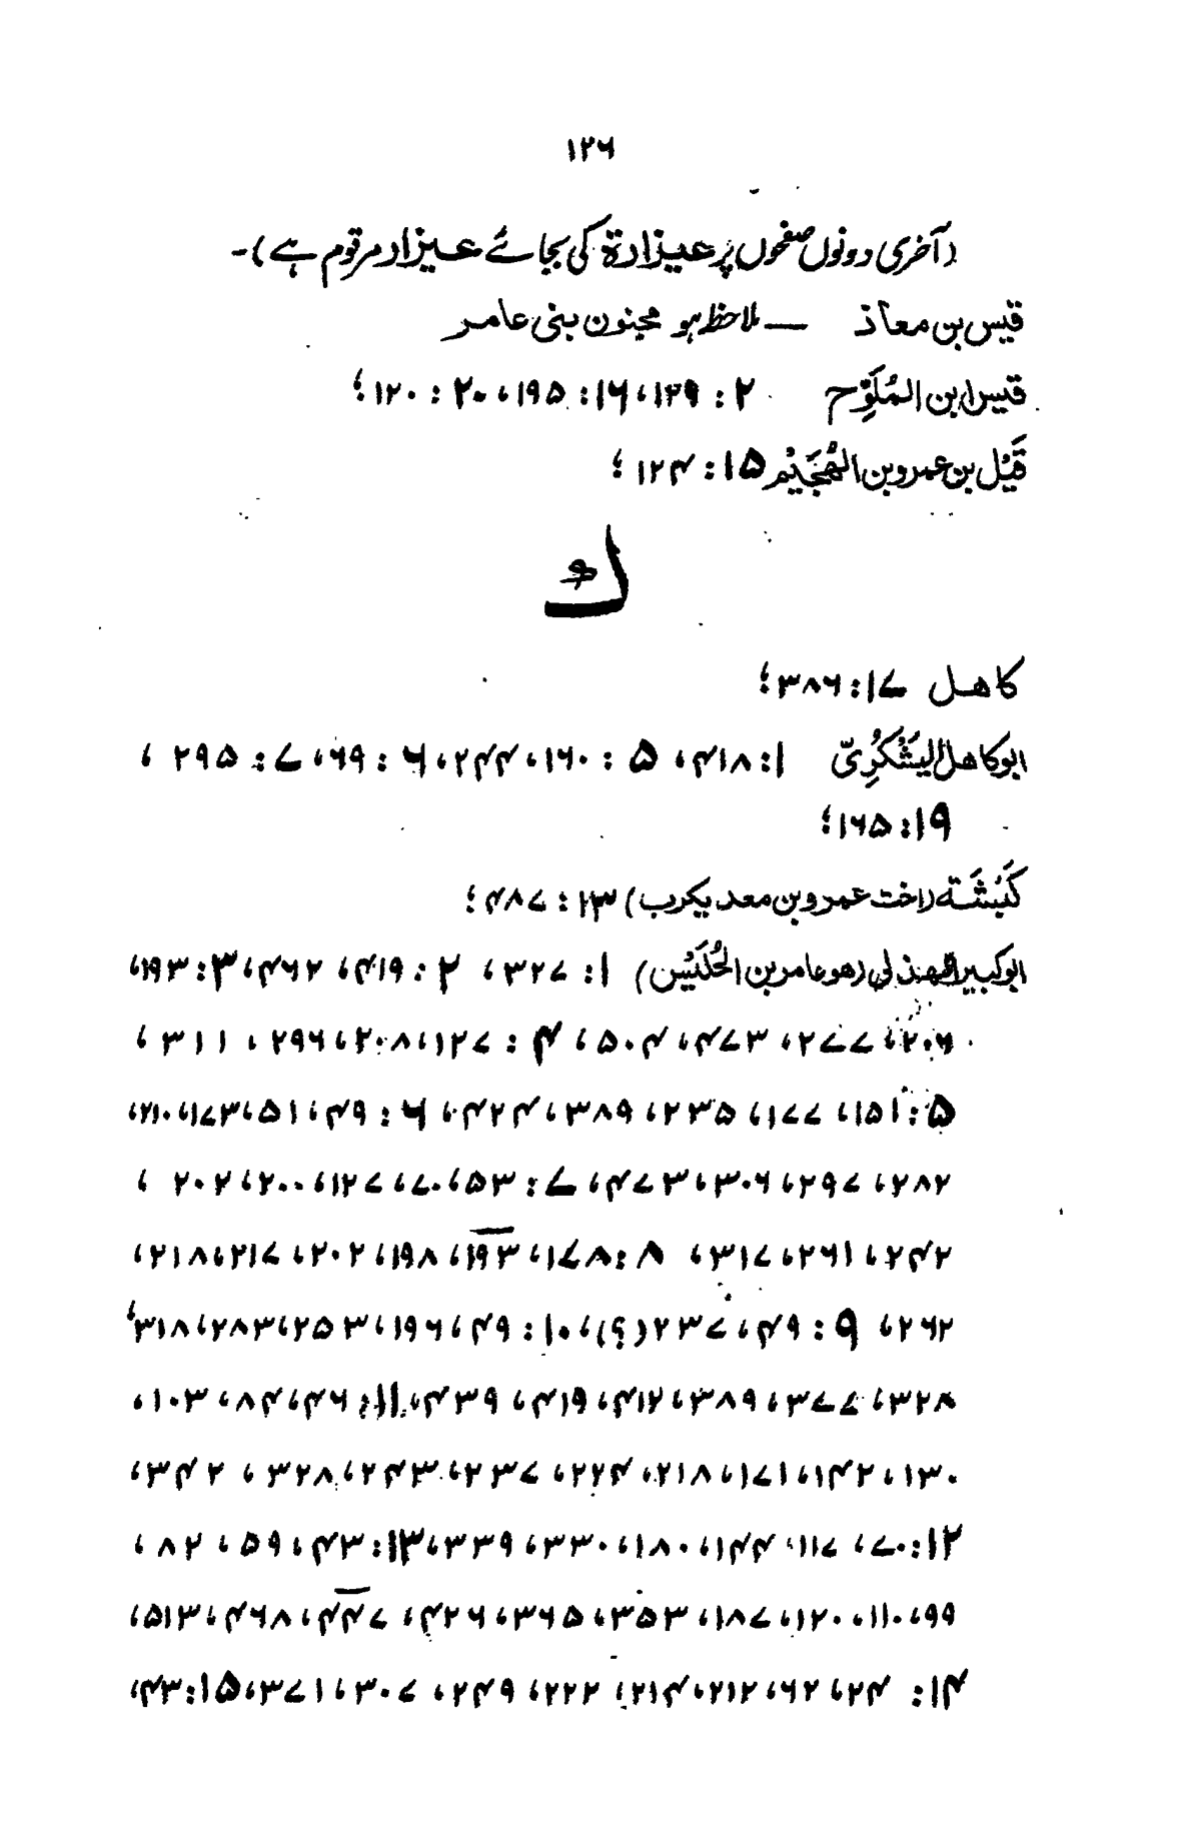 ۱۲۶
(آخری دونوں صفحوں پر عیزارة کی بجائے عیزار مرقوم ہے)۔
قیس بن معاذ — ملاحظہ ہو مجنون بنی عامر
قیس ابن المُلَوِّح ۲ : ۱۳۹، ۱۶: ۱۹۵، ۲۰ : ۱۲۰؛
قَيْل بن عمرو بن الهُجَيْم ۱۵: ۱۲۴؛
ك
كاهل ۱۷: ۳۸۶؛
ابو كاهل اليَشْكُرِىّ ۱: ۴۱۸، ۵ : ۱۶۰، ۲۴۴، ۶ : ۶۹، ۷: ۲۹۵ ،
۱۹: ۱۶۵؛
كَبْشَة (اخت عمرو بن معد یکرب) ۱۳: ۴۸۷؛
ابو كبير الهذلى (هو عامر بن الحُلَيْس) ۱: ۳۲۷ ، ۲ : ۴۱۹، ۴۶۲ ،۳: ۱۹۳،
۲۰۶، ۲۷۷، ۴۷۳، ۵۰۴، ۴ : ۱۲۷، ۲۰۸، ۲۹۶ ، ۳۱۱ ،
۵: ۱۵۱، ۱۷۷، ۲۳۵، ۳۸۹، ۴۲۴، ۶ : ۴۹، ۵۱، ۱۷۳، ۲۱۰،
۲۸۲، ۲۹۷، ۳۰۶، ۴۷۳، ۷: ۵۳، ۷۰، ۱۲۷، ۲۰۰، ۲۰۲ ،
۲۴۲، ۲۶۱، ۳۱۷، ۸: ۱۷۸، ۱۹۳، ۱۹۸، ۲۰۲، ۲۱۷، ۲۱۸،
۲۶۲، ۹ : ۴۹، ۲۳۷(؟)، ۱۰: ۴۹، ۱۹۶، ۲۵۳، ۲۸۳، ۳۱۸،
۳۲۸، ۳۷۷، ۳۸۹، ۴۱۲، ۴۱۹، ۴۳۹، ۱۱: ۴۶، ۸۴، ۱۰۳،
۱۳۰، ۱۴۲، ۱۷۱، ۲۱۸، ۲۲۴، ۲۳۷، ۲۴۳، ۳۲۸ ، ۳۴۲،
۱۲: ۷۰، ۱۱۷، ۱۴۴، ۱۸۰، ۳۳۰، ۳۳۹، ۱۳: ۴۳، ۵۹ ، ۸۲ ،
۹۹، ۱۱۰، ۱۲۰، ۱۸۷، ۳۵۳، ۳۶۵، ۴۲۶، ۴۴۷، ۴۶۸، ۵۱۳،
۱۴: ۲۴، ۲۶، ۲۱۲، ۲۱۴، ۲۲۲، ۲۴۹، ۳۰۷، ۳۷۱، ۱۵: ۴۳،